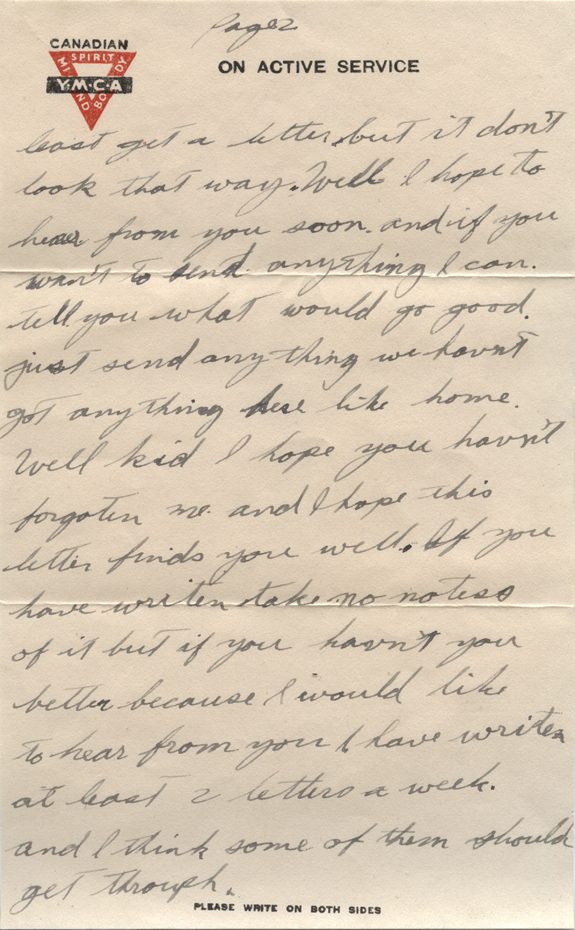 Page 2
CANADIAN
SPIRIT
MIND BODY
Y·M·C·A
ON ACTIVE SERVICE
least get a letter, but it don't
look that way. Well I hope to
hear from you soon. and if you
want to send anything I can.
tell you what would go good.
just send anything we havn't
got anything here like home.
Well kid I hope you havn't
forgoten me. and I hope this
letter finds you well. If you
have writen take no notess
of it but if you havn't you
better because I would like
to hear from you I have writen
at least 2 letters a week.
and I think some of them should
get through.
PLEASE WRITE ON BOTH SIDES